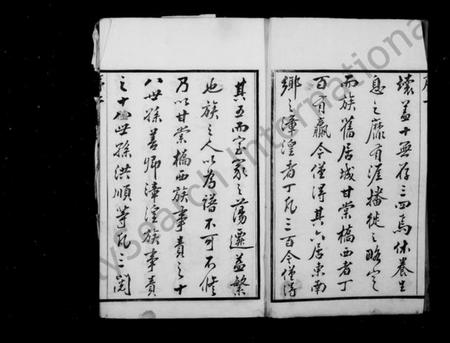 壞蓋十無存三四焉休養生
息之靡有涯播徙之略定
而族舊居城甘棠橋西者丁
百有贏今僅得其六居東南
鄉之漳湟者丁瓦三百今僅得
其五而室家之蕩遷益繁
也族之人以為譜不可不修
乃以甘棠橋西族事責之十
八世孫善卿漳湟族事責
之十世孫洪順等凡三閱